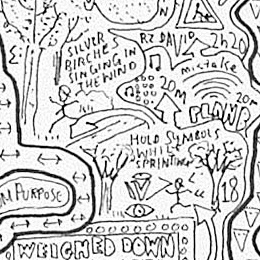 SILVER
BIRCHES
SINGING IN
THE WIND
RZ DAVID
2h20
mistake
20M
20m
PLANR
HOLD SYMBOLS
WHILE
SPRINTING
M PURPOSE
18
WEIGHED DOWN